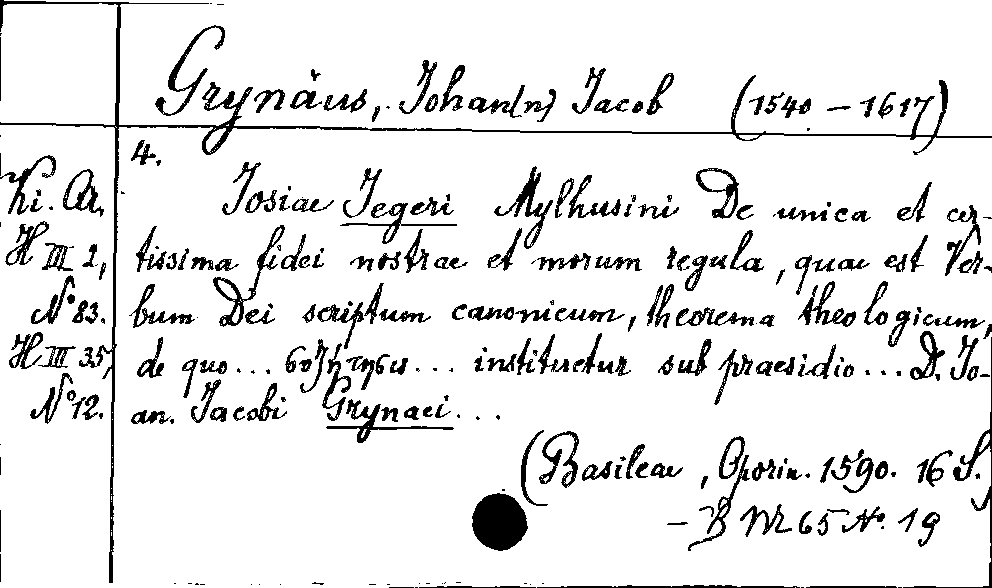 Grynäus, Johan(n) Jacob (1540 – 1617)
4.
Ki. Ar.
H III 2,
No 83.
H III 35,
No 12.
Josiae Jegeri Mylhusini De unica et cer-
tissima fidei nostrae et morum regula, quae est Ver-
bum Dei scriptum canonicum, theorema theologicum,
de quo... συζήτησις... instituetur sub praesidio... D. Jo-
an. Jacobi Grynaei...
(Basileae, Oporin. 1590. 16 S.
– B 65 No. 19